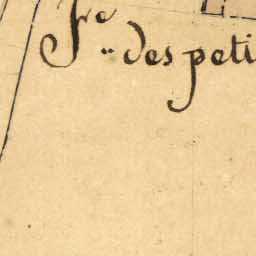 Fe des peti